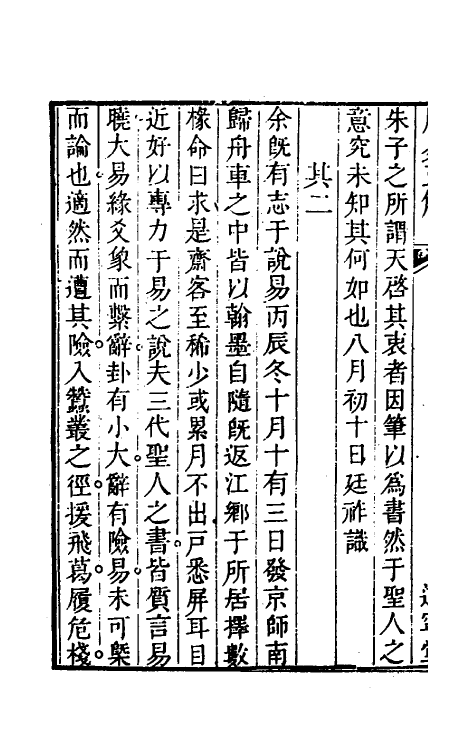 朱子之所謂天啓其衷者因筆以爲書然于聖人之
意究未知其何如也八月初十日廷祚識
其二
余旣有志于說易丙辰冬十月十有三日發京師南
歸舟車之中皆以翰墨自隨旣返江鄉于所居擇數
椽命曰求是齋客至稀少或累月不出戸悉屏耳目
近好以專力于易之說夫三代聖人之書。皆質言易
曉大易緣爻象而繫辭。卦有小大。辭有險易。未可槩
而論也適然而遭其險。入蠶叢之徑。援飛葛。履危棧。